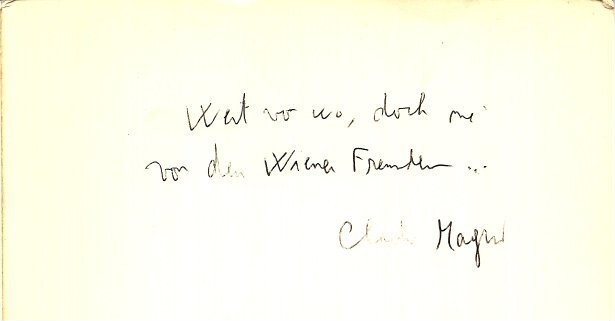 Weit vo wo, doch nie
von den Wiener Freunden ...
Claudio Magris